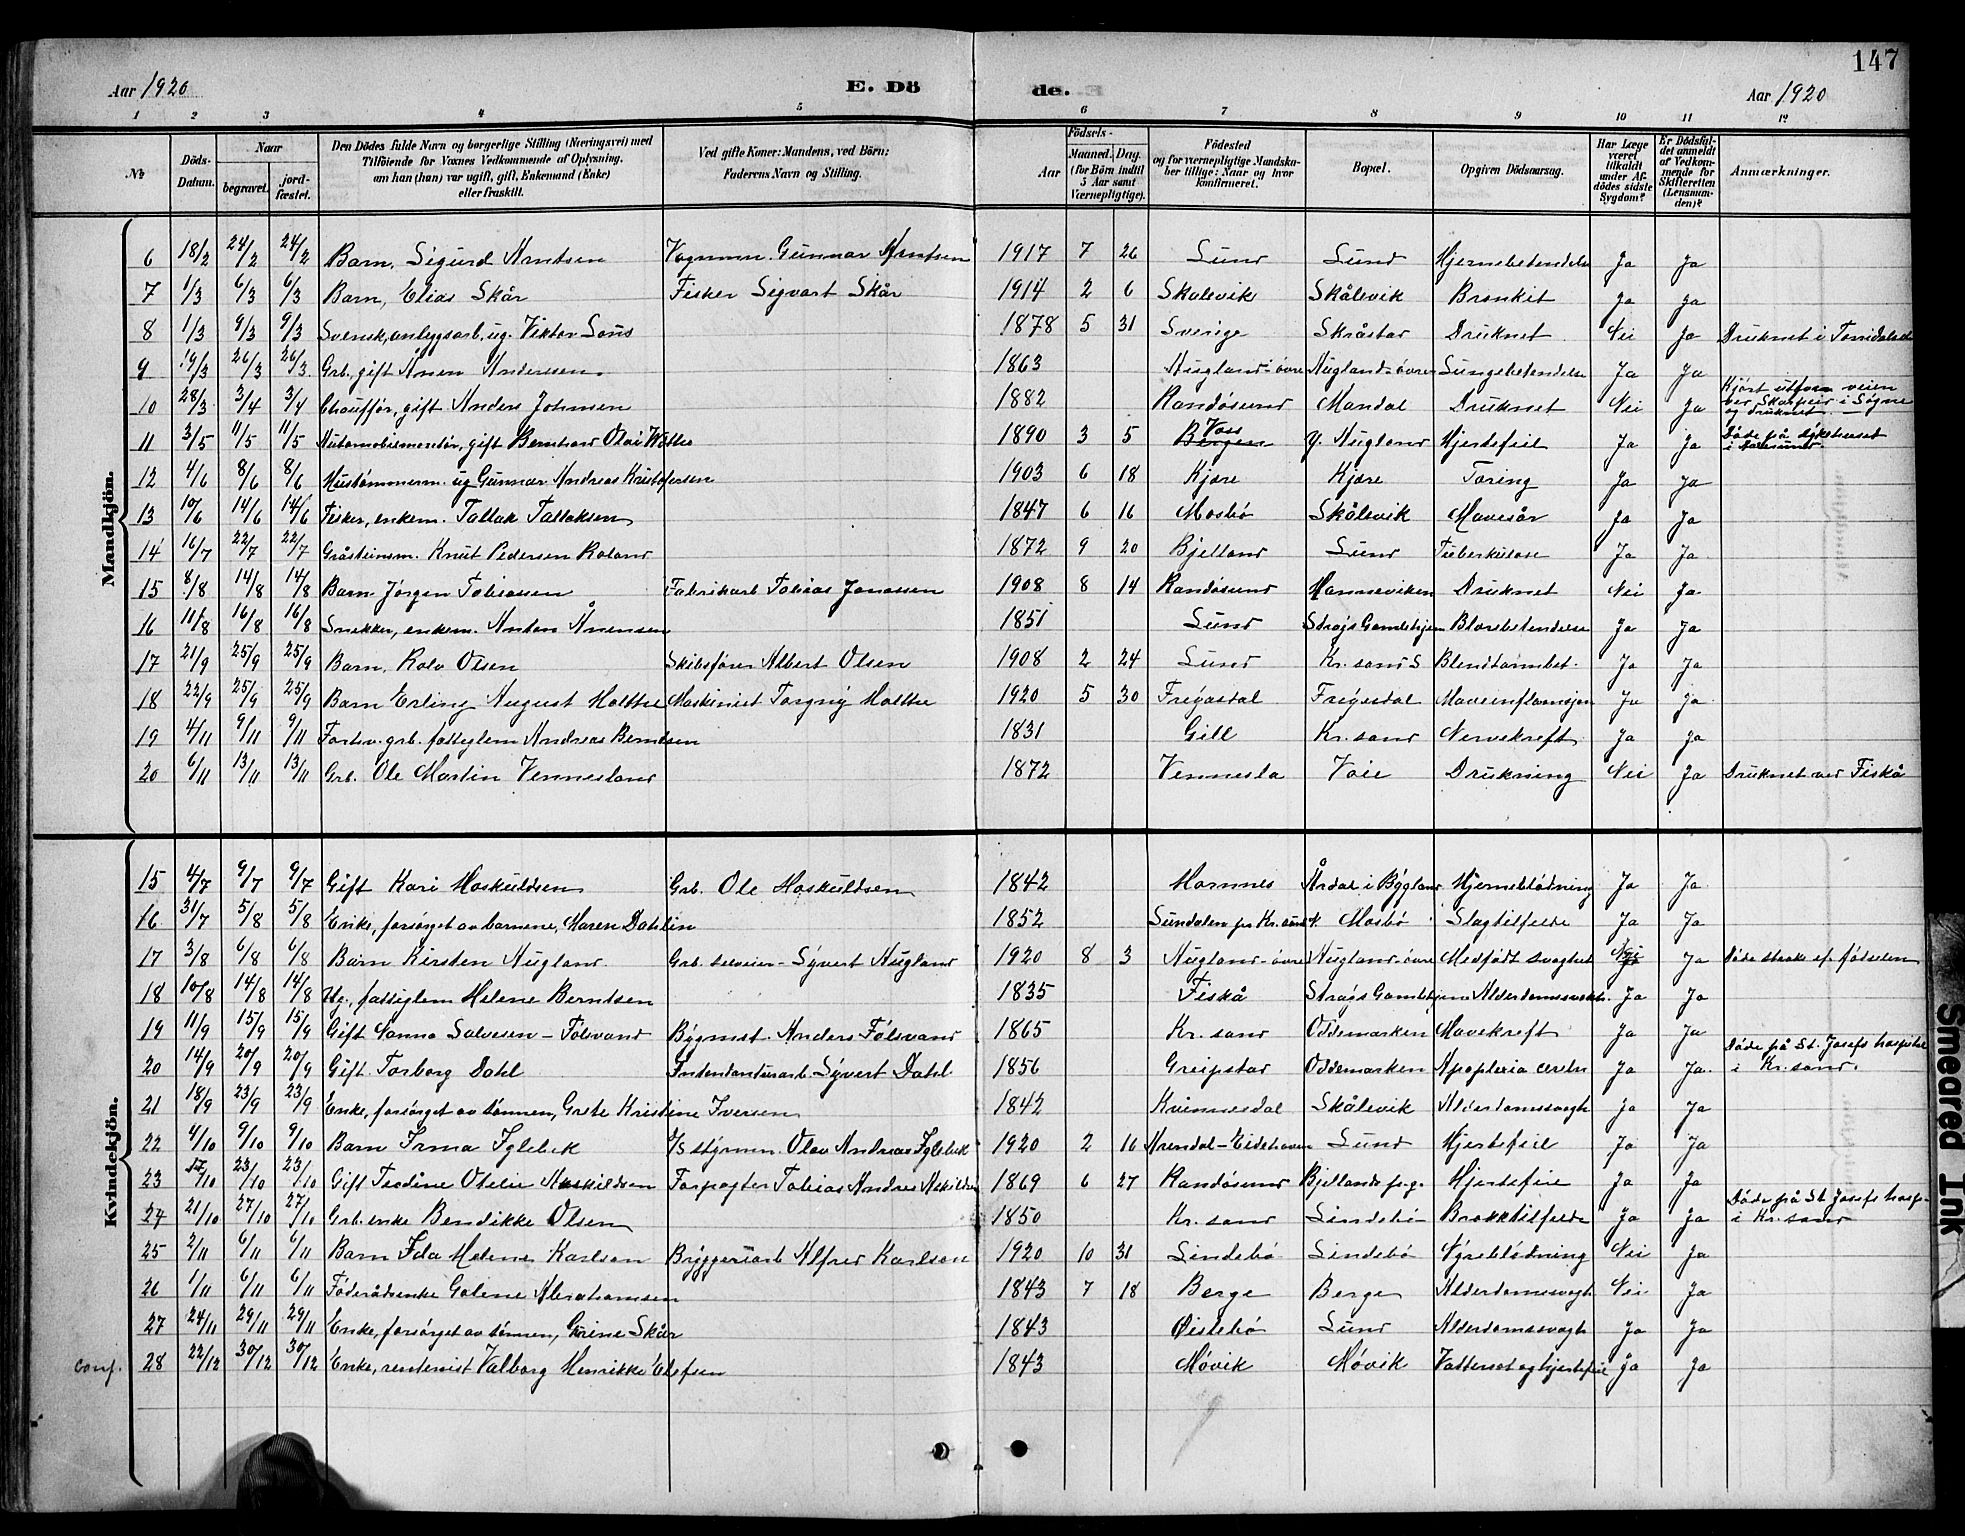 147
Aar 1920 E. Dö de. Aar 1920
1 2 3 4 5 6 7 8 9 10 11 12
№ Döds-Datum. Naar begravet. jordfæstet. Den Dödes fulde Navn og borgerlige Stilling (Næringsvei) med Tilföiende for Voxnes Vedkommende af Oplysning. om han (hun) var ugift, gift, Enkemand (Enke) eller fraskilt. Ved gifte Koner: Mandens, ved Börn: Faderens Navn og Stilling. Födsels- Aar Maaned. Dag. (for Börn indtil 5 Aar samt Værnepligtige). Födested og for værnepligtige Mandskaber tillige: Naar og hvor konfirmeret. Bopæl. Opgiven Dödsaarsag. Har Læge været tilkaldt under Afdödes sidste Sygdom? Er Dödsfaldet anmeldt af Vedkommende for Skifteretten (Lensmanden)? Anmærkninger.
Mandkjön.
6 18/2 24/2 24/2 Barn, Sigurd Arntsen Vognmn. Gunnar Arntsen 1917 7 26 Lund Lund Hjernebetendelse Ja Ja
7 1/3 6/3 6/3 Barn, Elias Skår Fisker Sigvart Skår 1914 2 6 Skålevik Skålevik Bronkit Ja Ja
8 1/3 9/3 9/3 Svensk, anlegsarb, ug. Viktor 1878 5 31 Sverige Skråstad Druknet Nei Ja Druknet i
9 19/3 26/3 26/3 Grb., gift Ånen Andersen 1863 Augland-övre Augland-övre Lungebetendelse Ja Ja
10 28/3 3/4 3/4 Chauffør, gift Anders Johnsen 1882 Randösund Mandal Druknet Nei Ja Kjört utfor veien ved i Sögne og druknet.
11 3/5 11/5 11/5 Automobilmontör, gift Bernhard Olai 1890 3 5 Bergen Voss y. Augland Hjertefeil Ja Ja Döde på sykehuset i
12 4/6 8/6 8/6 Hustömmerm. ug Gunnar Andreas Kristofersen 1903 6 18 Kjære Kjære Tæring Ja Ja
13 10/6 14/6 14/6 Fisker, enkem. Tallak Tallaksen 1847 6 16 Mosbö Skålevik Mavesår Ja Ja
14 16/7 22/7 22/7 Gråsteinsm. Knut Pedersen Roland 1872 9 20 Bjelland Lund Tuberkulose Ja Ja
15 8/8 14/8 14/8 Barn Jörgen Tobiassen Fabrikarb Tobias Jonassen 1908 8 14 Randösund Hanneviken Druknet Nei Ja
16 11/8 16/8 16/8 Snekker, enkem. Anton Ånensen 1851 Lund Strays Gamlehjem Blærebetendelse Ja Ja
17 21/9 25/9 25/9 Barn, Rolv Olsen Skibsfører Albert Olsen 1908 2 24 Lund Kr.sand S Blindtarmbet. Ja Ja
18 22/9 25/9 25/9 Barn Erling August Holthe Maskinist Torgny Holthe 1920 5 30 Fregasdal Fregasdal Maveinflamasjon Ja Ja
19 4/11 9/11 9/11 Forhv. grb. fattiglem Andreas Berntsen 1831 Gill Kr.sand Nervekreft Ja Ja
20 6/11 13/11 13/11 Grb. Ole Martin Vennesland 1872 Vennesla Voie Drukning Nei Ja Druknet ved Fiskå
Kvindekjön.
15 4/7 9/7 9/7 Gift Kari Hoskuldsen Grb. Ole Hoskuldsen 1842 Hornnes Årdal i Bygland Hjerneblödning Ja Ja
16 31/7 5/8 5/8 Enke, forsörget av barnene, Maren Dahlin 1852 Sundalen pr Kr.sund N. Mosbö Slagtilfelde Ja Ja
17 3/8 6/8 6/8 Barn Kirsten Augland Grb. selveier - Syvert Augland 1920 8 3 Augland-övre Augland-övre Medfödt svaghet Nei Ja Döde straks ef. fødselen
18 10/8 14/8 14/8 Ug., fattiglem Helene Berntsen 1835 Fiskå Strays Gamlehjem Alderdomssvakh. Ja Ja
19 11/9 15/9 15/9 Gift Nanna Salvesen - Fölsvand Bygmst. Anders Fölsvand 1865 Kr.sand Oddemarken Mavekreft Ja Ja
20 14/9 20/9 20/9 Gift Torborg Dahl Intendanturarb. Syvert Dahl 1856 Greipstad Oddemarken Apoplexia cerebr Ja Ja. Döde på St. Josefs hospital i Kr.sand.
21 18/9 23/9 23/9 Enke, forsörget av sönnen, Grete Kristine Iversen 1842 Kvinnesdal Skålevik Alderdomssvagh Ja Ja
22 4/10 9/10 9/10 Barn Irma Iglebek styrmn. Olav Andreas Iglebek 1920 2 16 Arendal - Eidehaven Lund Hjertefeil Ja Ja
23 17/10 23/10 23/10 Gift Teodine Otelie Askildsen Forpagter Tobias Andreas Askildsen 1869 6 27 Randösund Bjellands prg. Hjertefeil Ja Ja
24 21/10 27/10 27/10 Grb. enke Bendikke Olsen 1850 Kr.sand Lindebö Brokktilfelde Ja Ja Döde på St Josefs hosp. i Kr.sand
25 2/11 6/11 6/11 Barn Ida Helene Karlson Bryggeriarb Alfred Karlson 1920 10 31 Lindebö Lindebö Nyreblödning Nei Ja
26 1/11 6/11 6/11 Föderådsenke Golene Abrahamsen 1843 7 18 Berge Berge Alderdomssvagh Nei Ja
27 24/11 29/11 29/11 Enke, forsörget av sönnen, Grine Skår 1843 Øislebö Lund Alderdomssvagh Ja Ja
conf. 28 22/12 30/12 30/12 Enke, rentenist Valborg Henrikke Olefsen 1843 Móvik Móvik Vattersot og hjertefeil Ja Ja
Smeared Ink